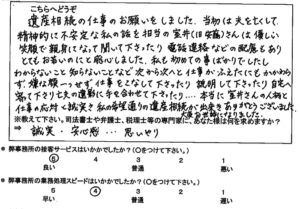 こちらへどうぞ
遺産相続の仕事のお願いをしました。当初は夫を亡くして、
精神的に不安定な私の話を担当の室井(旧宮脇)さんは優しい
笑顔で親身になって聞いて下さったり電話連絡などの配慮もあり
とてもお若いのにと感心しました。私も初めての事ばかりでしたし
わからないこと知らないことなど次から次へと仕事がふえたにもかかわら
ず、嫌な顔一つせず、仕事をこなして下さったり説明して下さり自宅へ
下さり、本当に室井さんの人柄と
仕事の応対と誠実さ私の希望通りの遺産相続が出来ありがとうございました。
大変お世話になりました。
※教えて下さい。司法書士や弁護士、税理士等の専門家に、あなた様は何を求めますか?
⇒ 誠実・安心感… 思いやり
● 弊事務所の接客サービスはいかがでしたか?(○をつけて下さい。)
5 4 3 2 1
良い 普通 悪い
● 弊事務所の業務処理スピードはいかがでしたか?(○をつけて下さい。)
5 4 3 2 1
早い 普通 遅い